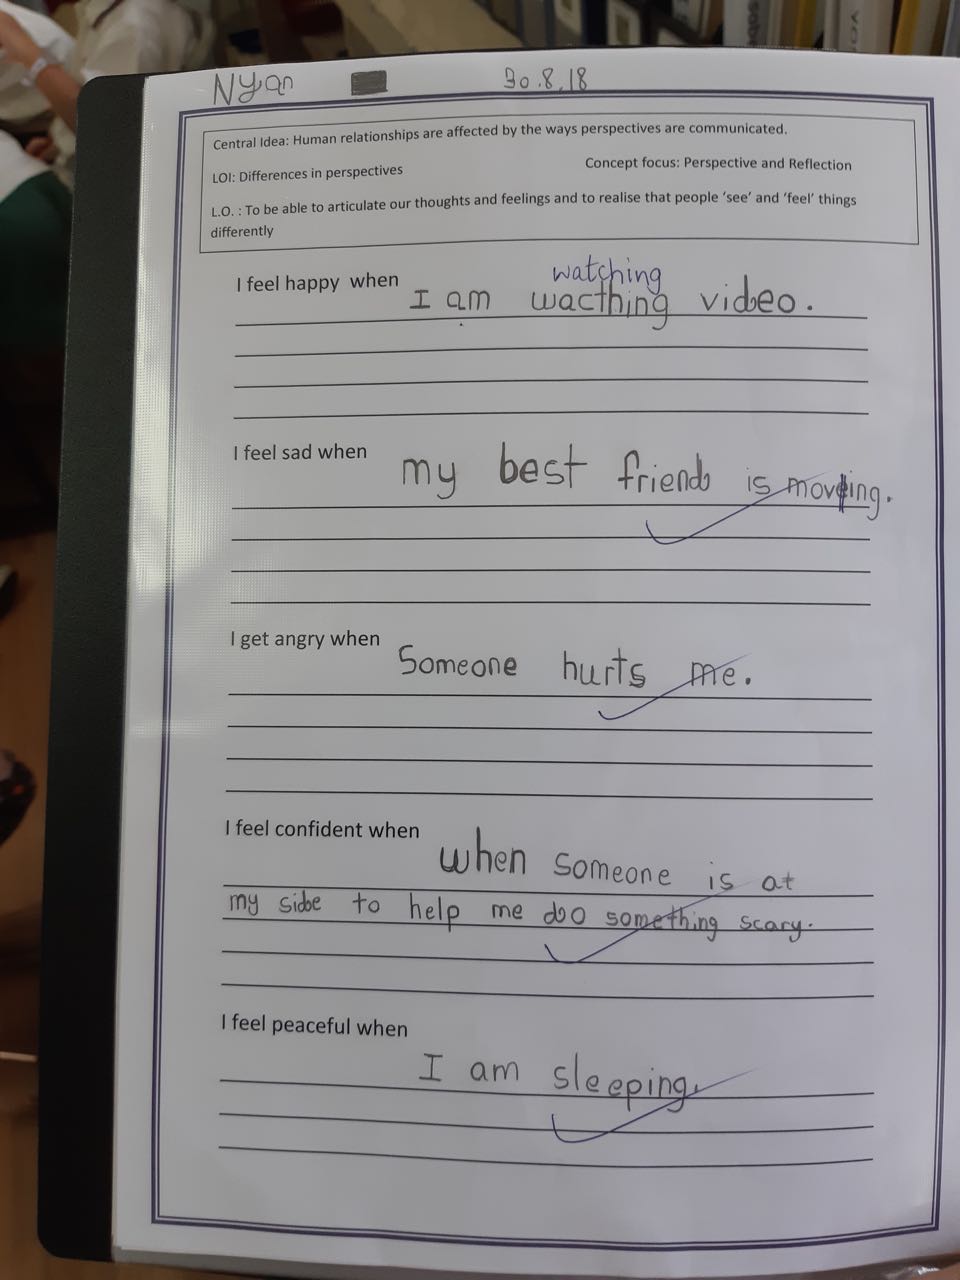 Nyan 30.8.18
Central Idea: Human relationships are affected by the ways perspectives are communicated.
LOI: Differences in perspectives Concept focus: Perspective and Reflection
L.O. : To be able to articulate our thoughts and feelings and to realise that people ‘see’ and ‘feel’ things
differently
watching
I feel happy when I am wacthing video.
I feel sad when my best friend is moving.
I get angry when Someone hurts me.
I feel confident when when someone is at
my side to help me do something scary.
I feel peaceful when
I am sleeping.